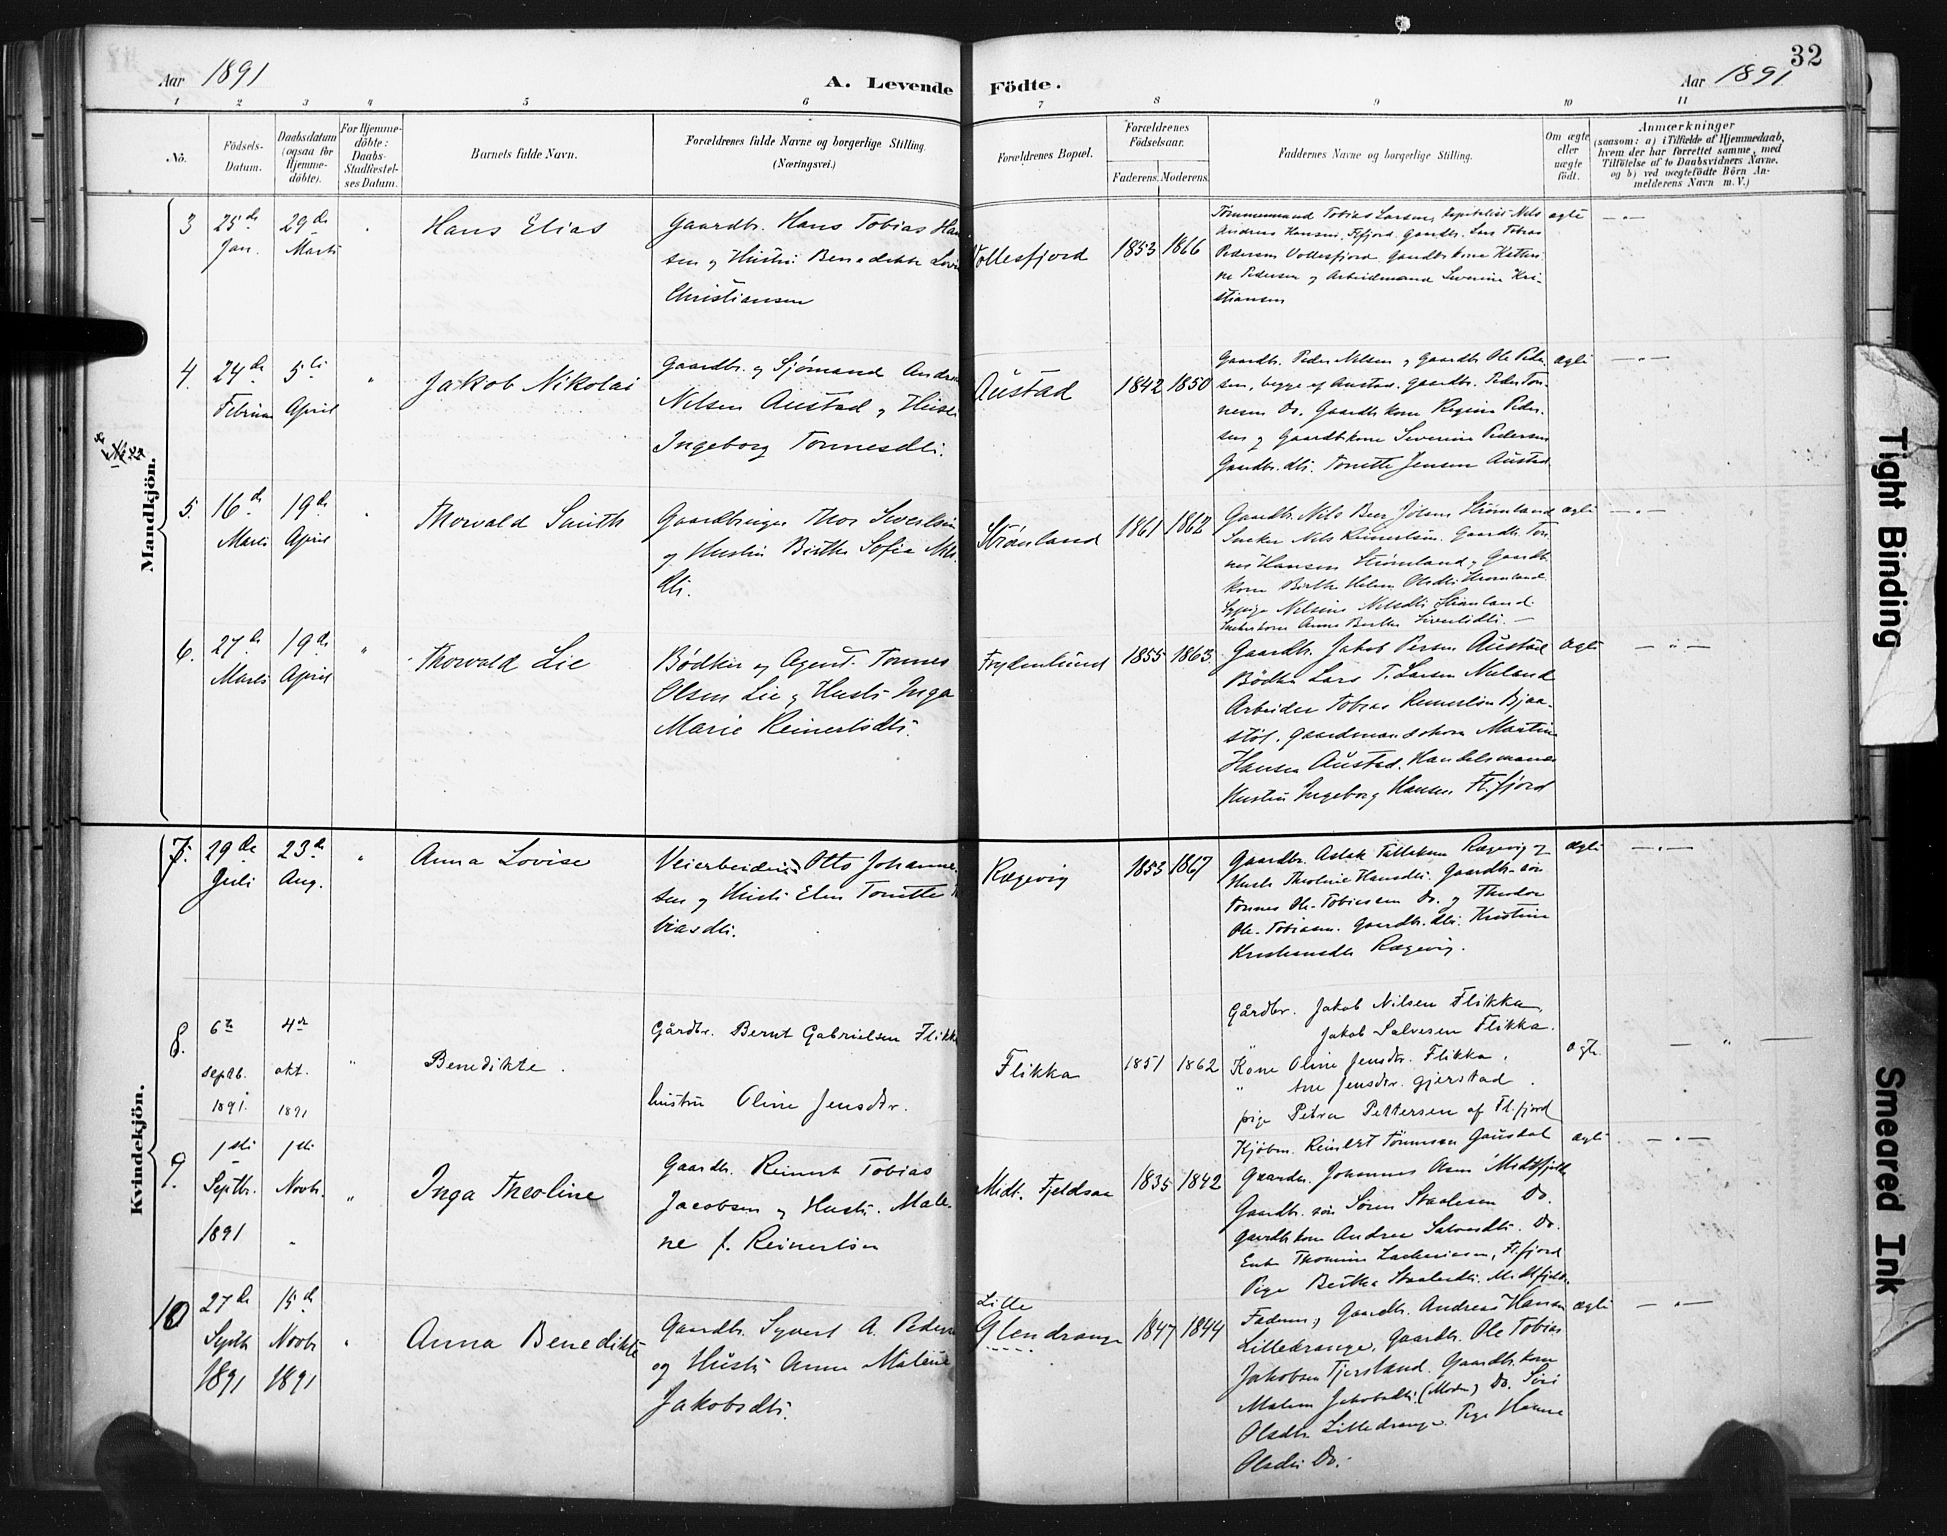 32
Aar 1891
A. Levende Födte.
Aar 1891
1 2 3 4 5 6 7 8 9 10 11
No.
Födsels-Datum.
Daabsdatum (ogsaa for Hjemme-döbte).
For Hjemme-döbte: Daabs-Stadfæstel-ses Datum.
Barnets fulde Navn.
Forældrenes fulde Navne og borgerlige Stilling. (Næringsvei.)
Forældrenes Bopæl.
Forældrenes Födselsaar.
Faderens. Moderens.
Faddernes Navne og borgerlige Stilling.
Om ægte eller uægte födt.
Anmærkninger
(saasom: a) i Tilfælde af Hjemmedaab,
hvem der har forrettet samme, med
Tilföielse af to Daabsvidners Navne,
og b) ved uægtefödte Börn An-
melderens Navn m. V.)
Mandkjön.
3 25de Jan. 29de Marts
Hans Elias
Gaardbr. Hans Tobias Han
sen og Hustru Benedikte
Christiansen
Vollesfjord 1853 1866
Tømmermand Tobias Larsen, Nils
Andreas Hansen, Flfjord. Gaardbr. Lars Tobias
Pedersen Vollesfjord, Gaardbrkone Kathri-
ne Pedersen og Arbeidmand Severine Kri-
stiansen
ægte
4. 24de Februar 5te April
Jakob Nikolai
Gaardbr. og Sjømand Andreas
Nilsen Austad og Hustru
Ingeborg Tonnesdtr.
Austad 1842 1850
Gaardbr. Peder Nilsen og Gaardbr Ole Peder-
sen, begge af Austad. Gaardbr. Peder Ton-
nesen Do. Gaardbrkone Regine Peder-
sen og Gaardbrkone Severine Pedersen
Gaardbr.dtr. Tonette Jensen Austad
ægte
5. 16de Marts 19de April
Thorvald Smith
Gaardbruger Thor Sivertsen
og Hustru Birthe Sofie Nils-
dtr.
Strømland 1861 1862
Gaardbr. Nils Beer Jolsen Strømland
Snekker Nils Reinertsen. Gaardbr. Ton-
nes Hansen Strømland, Gaardbr.
kone Birthe Helene Olsdtr Strømland
Sypige Nilsine Nilsdtr Strømland
Snekkerkone Anne Berthe Sivertsdtr.
ægte
6. 27de Marts 19de April
Thorvald Lie
Bødker og Agent Tonnes
Olsen Lie og Hustr. Inga
Marie Reinertsdtr.
Frydenlund 1855 1863
Gaardbr. Jakob Persen Austad
Bødker Lars T. Larsen Nuland
Arbeider Tobias Reinertsen Bjaa-
støl. Gaardmandskone Martine
Hansen Austad. Handelsmands
Hustru Ingeborg Hansen Fl.fjord
Ægte
Kvindekjön.
7. 29de Juli 23de Aug.
Anna Lovise
Veiarbeider Otto Johanne-
sen og Hustr. Elen Tonette To
biasdtr.
Rægevig 1853 1867
Gaardbr. Aslak Rægevig og
Hustr. Theoline Hansdtr. Gaardbr.søn
Tonnes Ole Tobiassen Do. og Theodor
Ole Tobiassen. Gaardbr.dtr. Kristine
Kristiansdtr Rægevig.
ægte
8. 6te septb. 1891. 4de okt. 1891
Benedikte.
Gårdbr. Bernt Gabrielsen Flikka
hustru Oline Jensdtr.
Flikka 1851 1862
Gårdbr. Jakob Nilsen Flikka
" Jakob Salvesen Flikka.
Kone Oline Jensdtr. Flikka.
" Ane Jensdtr. Gjerstad.
pige Petra Pettersen af Fl.fjord
ægte
9. 1ste Septbr. 1891 1ste Novbr.
Inga Theoline
Gaardbr. Reinert Tobias
Jacobsen og Hustr. Male-
ne f. Reinertsen
Midt. Fjeldsaa 1835 1842
Kjøbm. Reinert Tønnesen Gaustal
Gaardbr. Johannes Midtfjeld
Gaardbr. søn Søren Staalesen Do.
Gaardbrkone Andrea Salvesdtr. Do.
Enke Thomine Zachariasen, Fl.fjord
Pige Bertha Staalesdtr. Midtfjeld.
ægte
10 27de Septbr 1891 15de Novbr 1891
Anna Benedikte
Gaardbr. Syvert A. Peders
og Hustr. Anna Malene
Jakobsdtr.
Lille
Glendrange 1847 1844
Faderen, Gaardbr. Andreas Hansen
Lilledrange, Gaardbr. Ole Tobias
Jakobsen Tjersland. Gaardbr.kone
Malene Jakobsdtr. (Moder) Do. Siri
Olsdtr. Lilledrange. Pige Hanne
Olsdtr Do.
ægte
Tight Binding
Smeared Ink